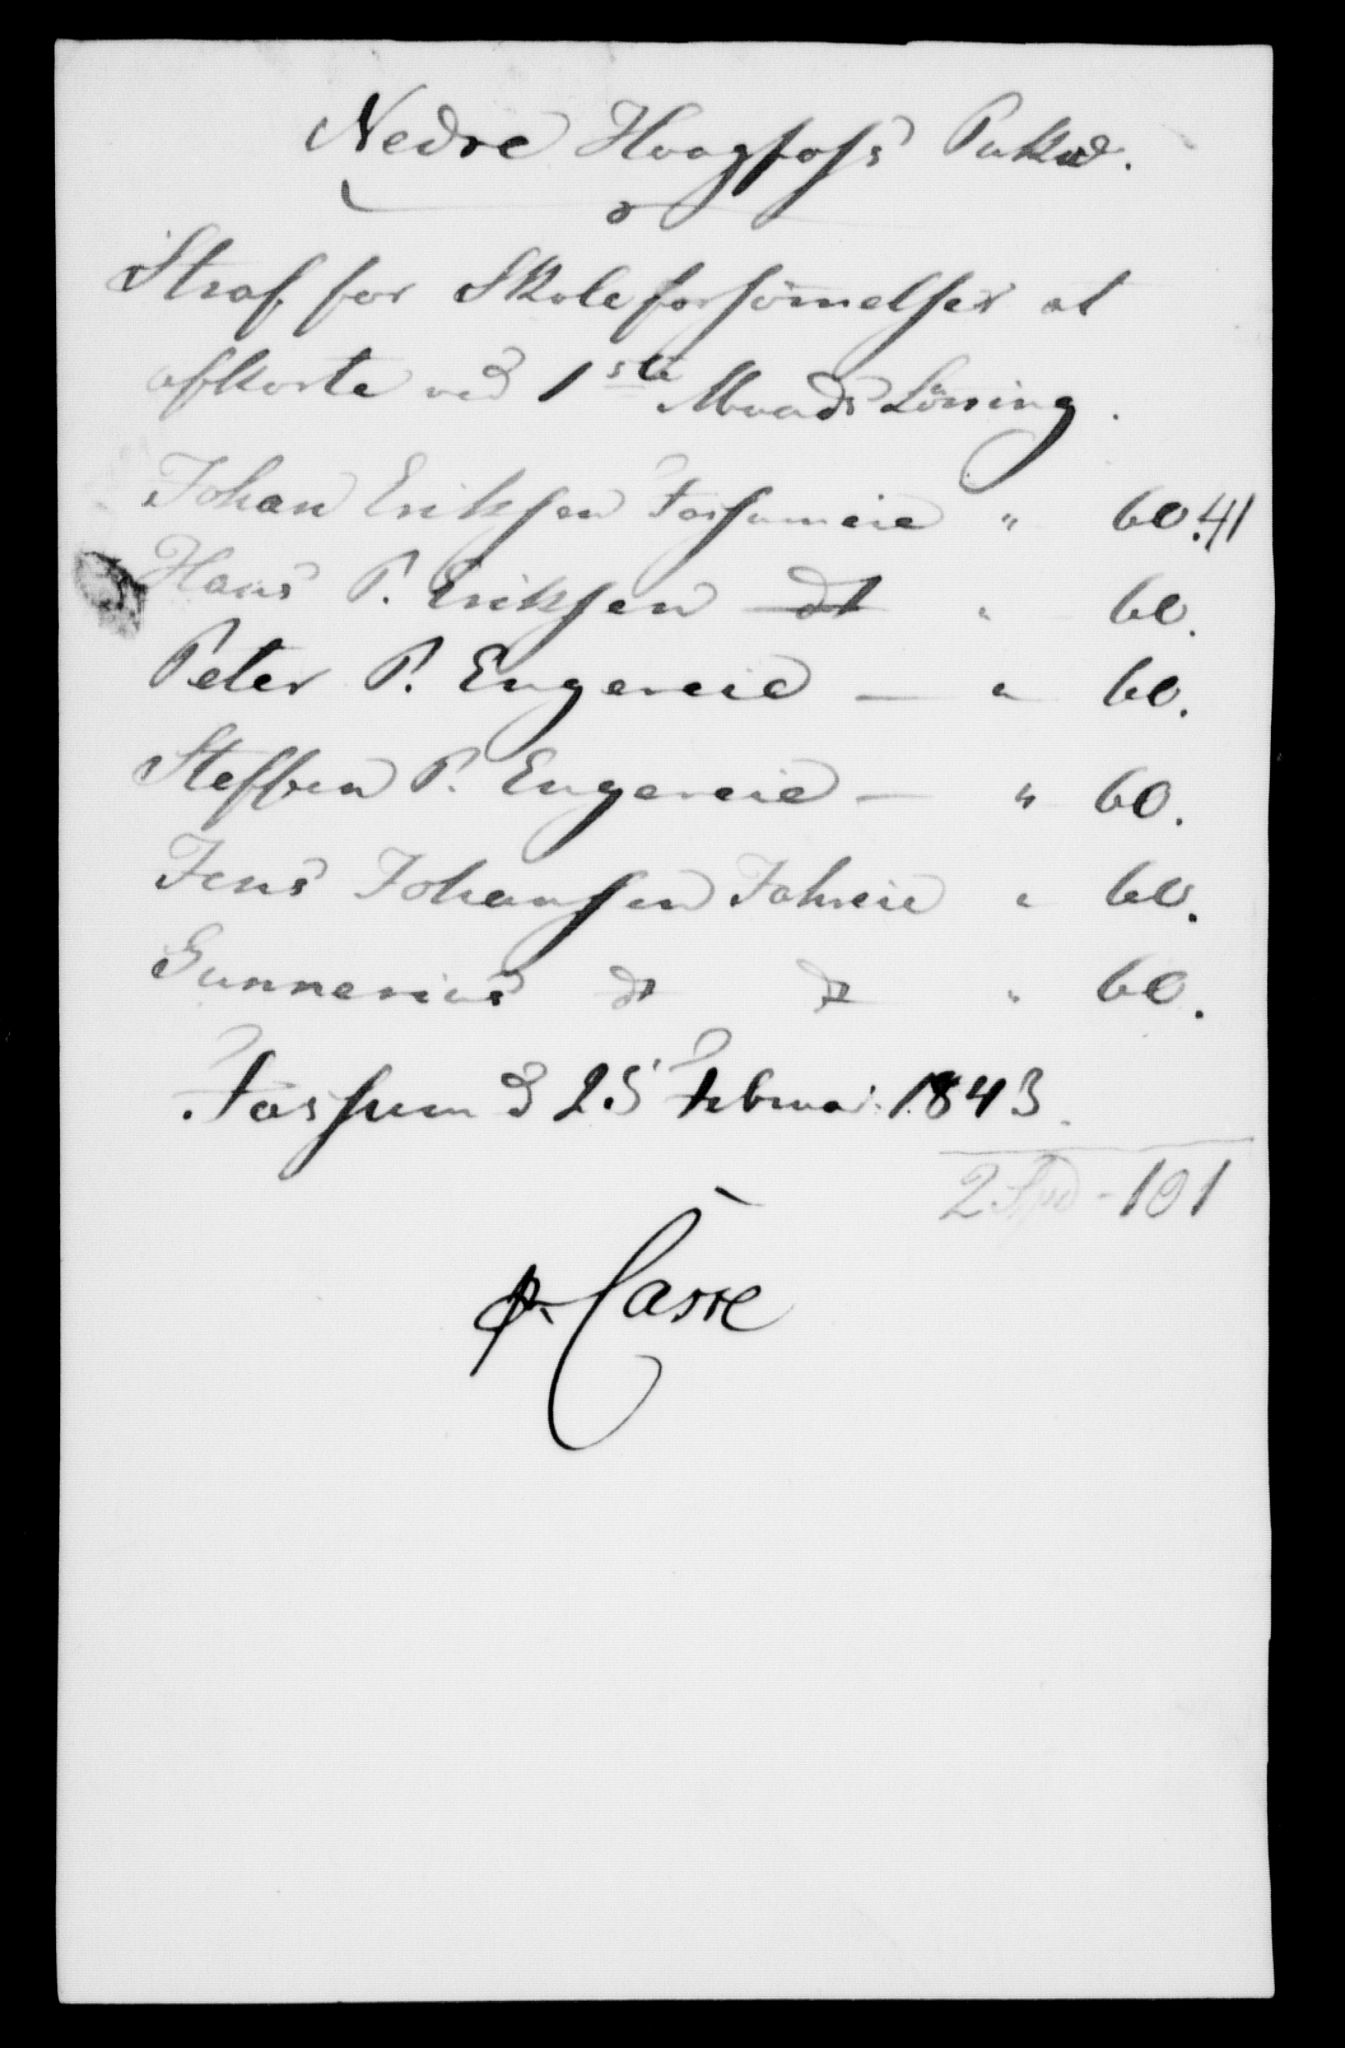 Nedre Haagfoss Pukvk.
Straf for Skoleforsömmelser at
afkorte ved 1ste Maads Lönning.
Johan Eriksen Fossumeie " 60.41
Hans P. Eriksen dt " 60.
Peter P. Engereie — " 60.
Steffen P. Engereie — " 60.
Jens Johansen Fahreie " 60.
Gunnerius dt dt " 60.
Fossum d 25 Februar 1843.
2 Spd - 101
Casse